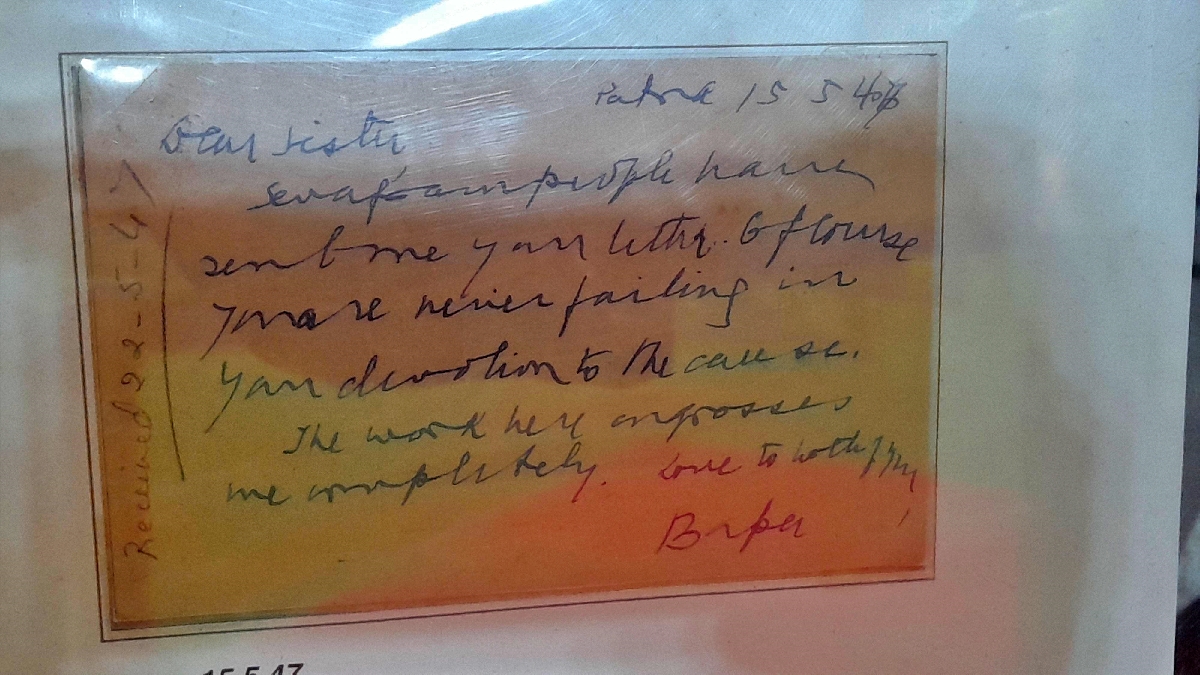 Patna 15 5 47
Dear sister
Sevagram people have
sent me your letter. Of course
you are never failing in
your devotion to the cause.
The work here engrosses
me completely. Love to both of you
Bapu
Received 22-5-47
15.5.47